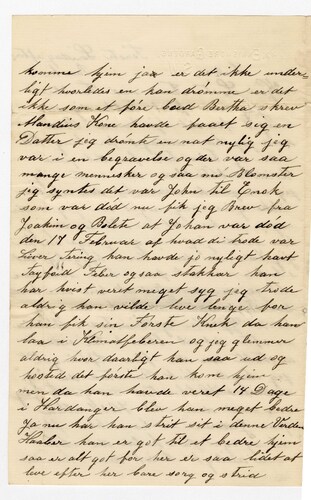 komme hjem ja er det ikke under-
ligt hvorledes en kan drømme er det
ikke som et före bud Bertha skrev
Mandius Kone havde faaet sig en
Datter jeg drömte en nat nylig jeg
var i en begravelse og der var saa
mange mennesker og saa me Blomster
jeg syntes det var John til Enok
som var död nu fik jeg Brev fra
Joakim og Bolete at Johan var död
den 17 Februar af hvad di trode var
Liver Tæring han havde jo nylig havt
Tayfoid Feber ogsaa stakkar han
har hvist veret meget syg jeg trode
aldrig han vilde leve lenge for
han fik sin Første Knek da han
laa i Klimatfeberen og jeg glemmer
aldrig hvor daarligt han saa ud og
hosted det første han kom hjem
men da han havde veret 14 Dage
i Hardanger blev han meget bedre
Ja nu har han strit sit i denne Verden
Haaber han er got til et bedre hjem
saa er alt got for her er saa lidet at
leve efter her bare sorg og strid